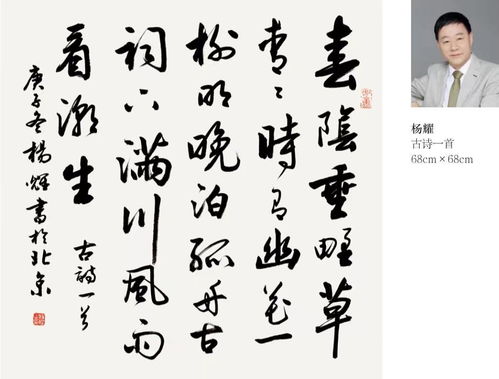 春陰垂野草
青々時有幽花一
樹明晚泊孤舟古
祠下滿川風雨
看潮生
古詩一首
庚子冬楊耀書於北京
杨耀
古诗一首
68cm×68cm